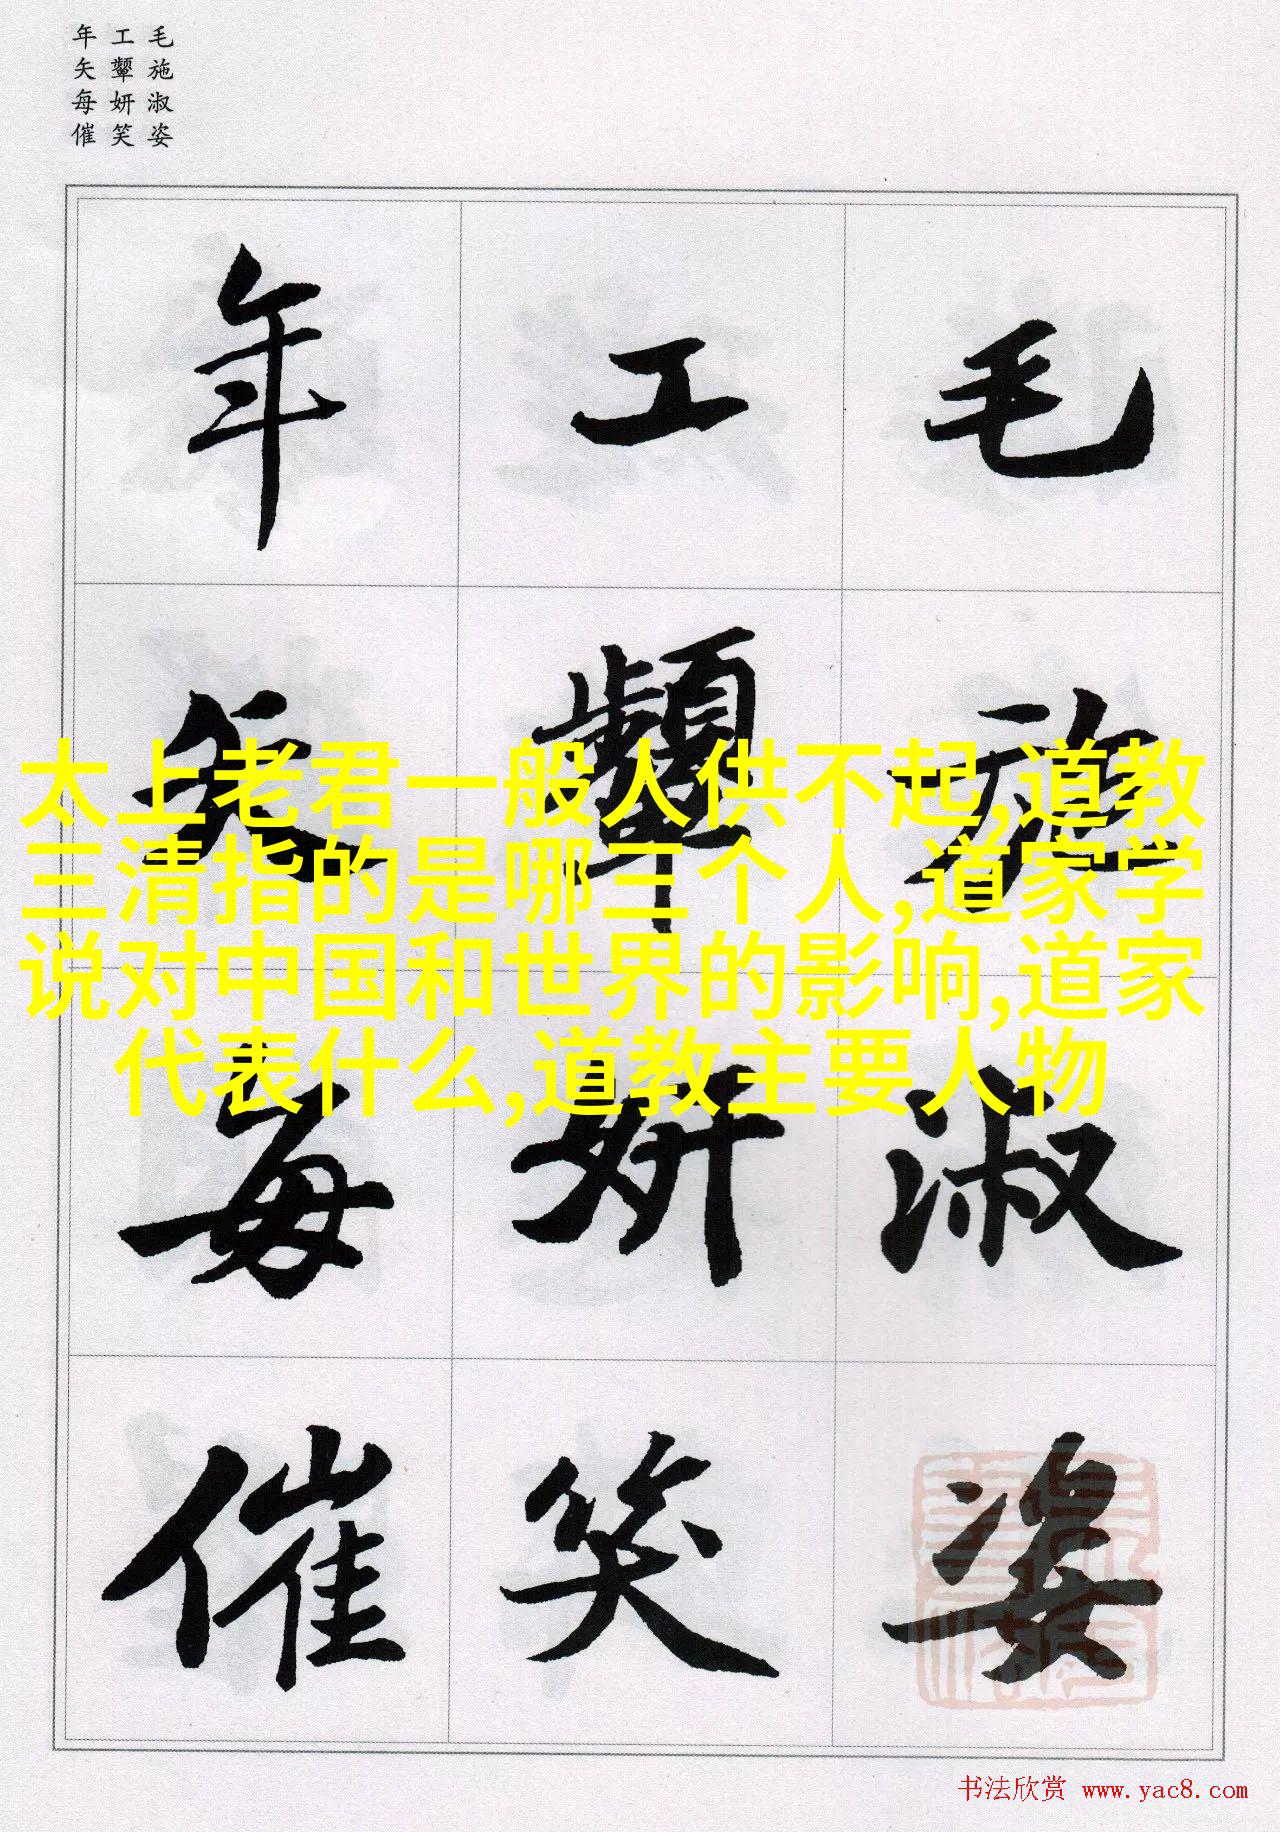 毛施淑姿
工顰妍笑
年矢每催
毛施淑姿
工顰妍笑
年矢每催
太上老君一般人供不起,道教
三清指的是哪三个人,道家学
说对中国和世界的影响,道家
代表什么,道教主要人物
书法欣赏 www.yac8.com